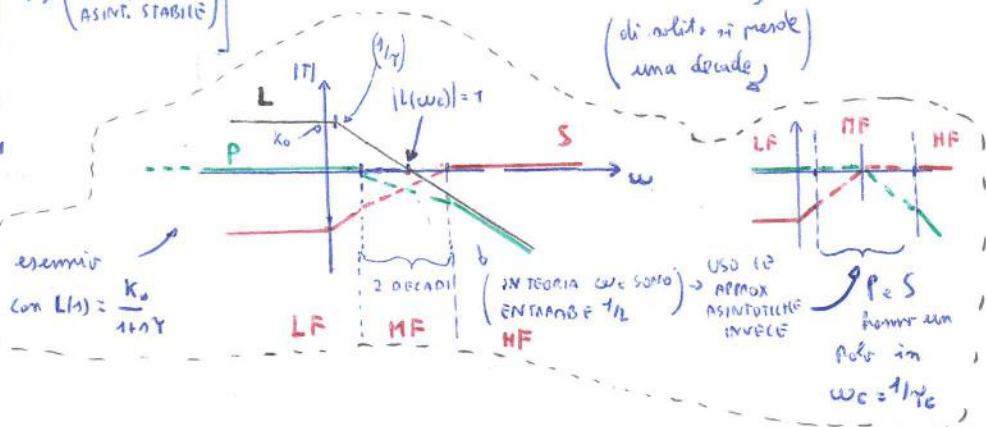 ASINT. STABILE
(di solito si prende
una decade)
|T|
(1/τ)
L
|L(ωc)|=1
K₀
P
S
ω
esempio
con L(s) = K₀
1+sτ
2 DECADI
(IN TEORIA ωc SONO
ENTRAMBE 1/2)
USO LE
APPROX
ASINTOTICHE
INVECE
LF
MF
HF
LF
MF
HF
P e S
hanno un
polo in
ωc = 1/τc